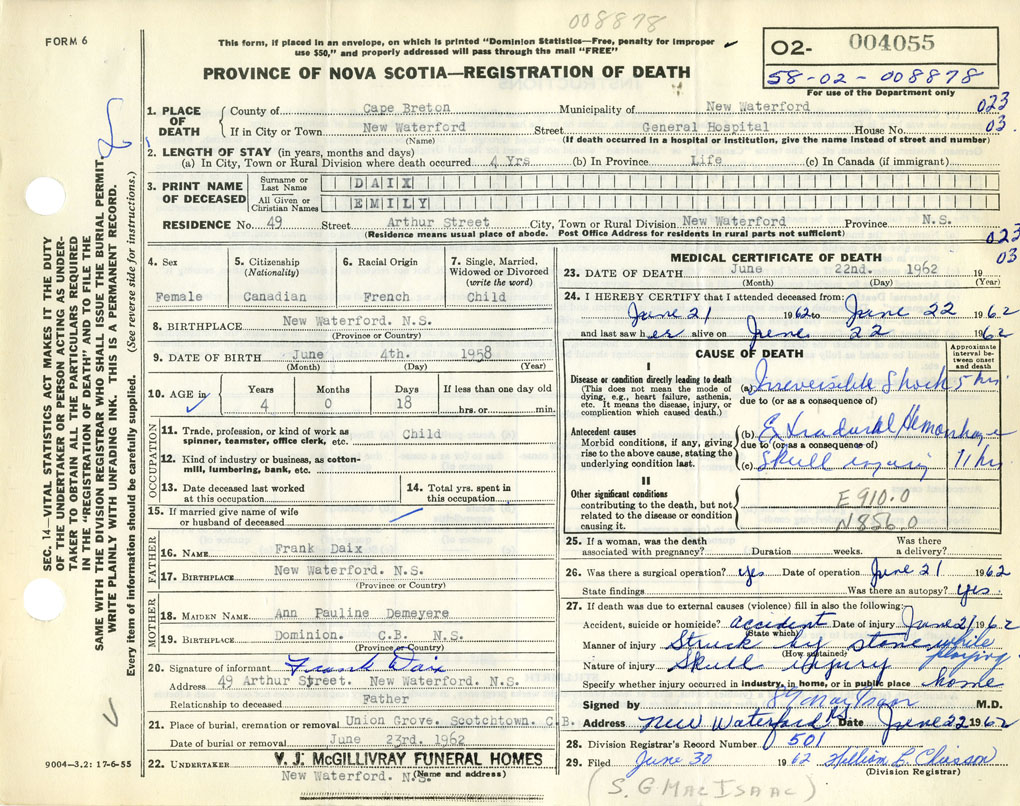 008878
FORM 6
This form, if placed in an envelope, on which is printed "Dominion Statistics—Free, penalty for improper
use $50," and properly addressed will pass through the mail "FREE"
PROVINCE OF NOVA SCOTIA—REGISTRATION OF DEATH
02- 004055
58-02-008878
For use of the Department only
1. PLACE OF DEATH
County of Cape Breton Municipality of New Waterford 023
If in City or Town New Waterford Street General Hospital House No. 03
(Name) (If death occurred in a hospital or institution, give the name instead of street and number)
2. LENGTH OF STAY (in years, months and days)
(a) In City, Town or Rural Division where death occurred 4 Yrs (b) In Province Life (c) In Canada (if immigrant)
3. PRINT NAME OF DECEASED
Surname or Last Name DAIX
All Given or Christian Names EMILY
RESIDENCE No. 49 Street Arthur Street City, Town or Rural Division New Waterford Province N.S.
(Residence means usual place of abode. Post Office Address for residents in rural parts not sufficient)
023
03
4. Sex
Female
5. Citizenship
(Nationality)
Canadian
6. Racial Origin
French
7. Single, Married,
Widowed or Divorced
(write the word)
Child
8. BIRTHPLACE New Waterford. N.S.
(Province or Country)
9. DATE OF BIRTH June 4th. 1958
(Month) (Day) (Year)
10. AGE in
Years Months Days If less than one day old
4 0 18 hrs. or min.
OCCUPATION
11. Trade, profession, or kind of work as Child
spinner, teamster, office clerk, etc.
12. Kind of industry or business, as cotton-
mill, lumbering, bank, etc.
13. Date deceased last worked
at this occupation
14. Total yrs. spent in
this occupation
15. If married give name of wife
or husband of deceased
FATHER
16. NAME Frank Daix
17. BIRTHPLACE New Waterford. N.S.
(Province or Country)
MOTHER
18. MAIDEN NAME Ann Pauline Demeyere
19. BIRTHPLACE Dominion. C.B. N.S.
(Province or Country)
20. Signature of informant Frank Daix
Address 49 Arthur Street. New Waterford. N.S.
Relationship to deceased Father
21. Place of burial, cremation or removal Union Grove. Scotchtown. C.B.
Date of burial or removal June 23rd. 1962
22. UNDERTAKER V. J. McGILLIVRAY FUNERAL HOMES
New Waterford. N.S. (Name and address)
MEDICAL CERTIFICATE OF DEATH
23. DATE OF DEATH June 22nd. 1962 19
(Month) (Day) (Year)
24. I HEREBY CERTIFY that I attended deceased from:
June 21 1962 to June 22 1962
and last saw her alive on June 22 1962
CAUSE OF DEATH
Approximate
interval be-
tween onset
and death
I
Disease or condition directly leading to death
(This does not mean the mode of
dying, e.g., heart failure, asthenia,
etc. It means the disease, injury, or
complication which caused death.)
(a) Irreversible Shock 5 hrs
due to (or as a consequence of)
Antecedent causes
Morbid conditions, if any, giving
rise to the above cause, stating the
underlying condition last.
(b) Extradural Hemorrhage
due to (or as a consequence of)
(c) Skull injury 11 hrs
II
Other significant conditions
contributing to the death, but not
related to the disease or condition
causing it.
E910.0
N856.0
25. If a woman, was the death
associated with pregnancy? Duration weeks. Was there
a delivery?
26. Was there a surgical operation? yes Date of operation June 21 1962
State findings Was there an autopsy? yes
27. If death was due to external causes (violence) fill in also the following:
Accident, suicide or homicide? accident Date of injury June 21 1962
(State which)
Manner of injury Struck by stone while playing
(How sustained)
Nature of injury Skull injury
Specify whether injury occurred in industry, in home, or in public place home
Signed by M.D.
Address New Waterford Date June 22 1962
28. Division Registrar's Record Number 501
29. Filed June 30 1962 William L. Chiasson
(Division Registrar)
(S. G MacIsaac)
SEC. 14—VITAL STATISTICS ACT MAKES IT THE DUTY
OF THE UNDERTAKER OR PERSON ACTING AS UNDER-
TAKER TO OBTAIN ALL THE PARTICULARS REQUIRED
IN THE "REGISTRATION OF DEATH" AND TO FILE THE
SAME WITH THE DIVISION REGISTRAR WHO SHALL ISSUE THE BURIAL PERMIT.
WRITE PLAINLY WITH UNFADING INK. THIS IS A PERMANENT RECORD.
Every item of information should be carefully supplied. (See reverse side for instructions.)
9004—3.2: 17-6-55